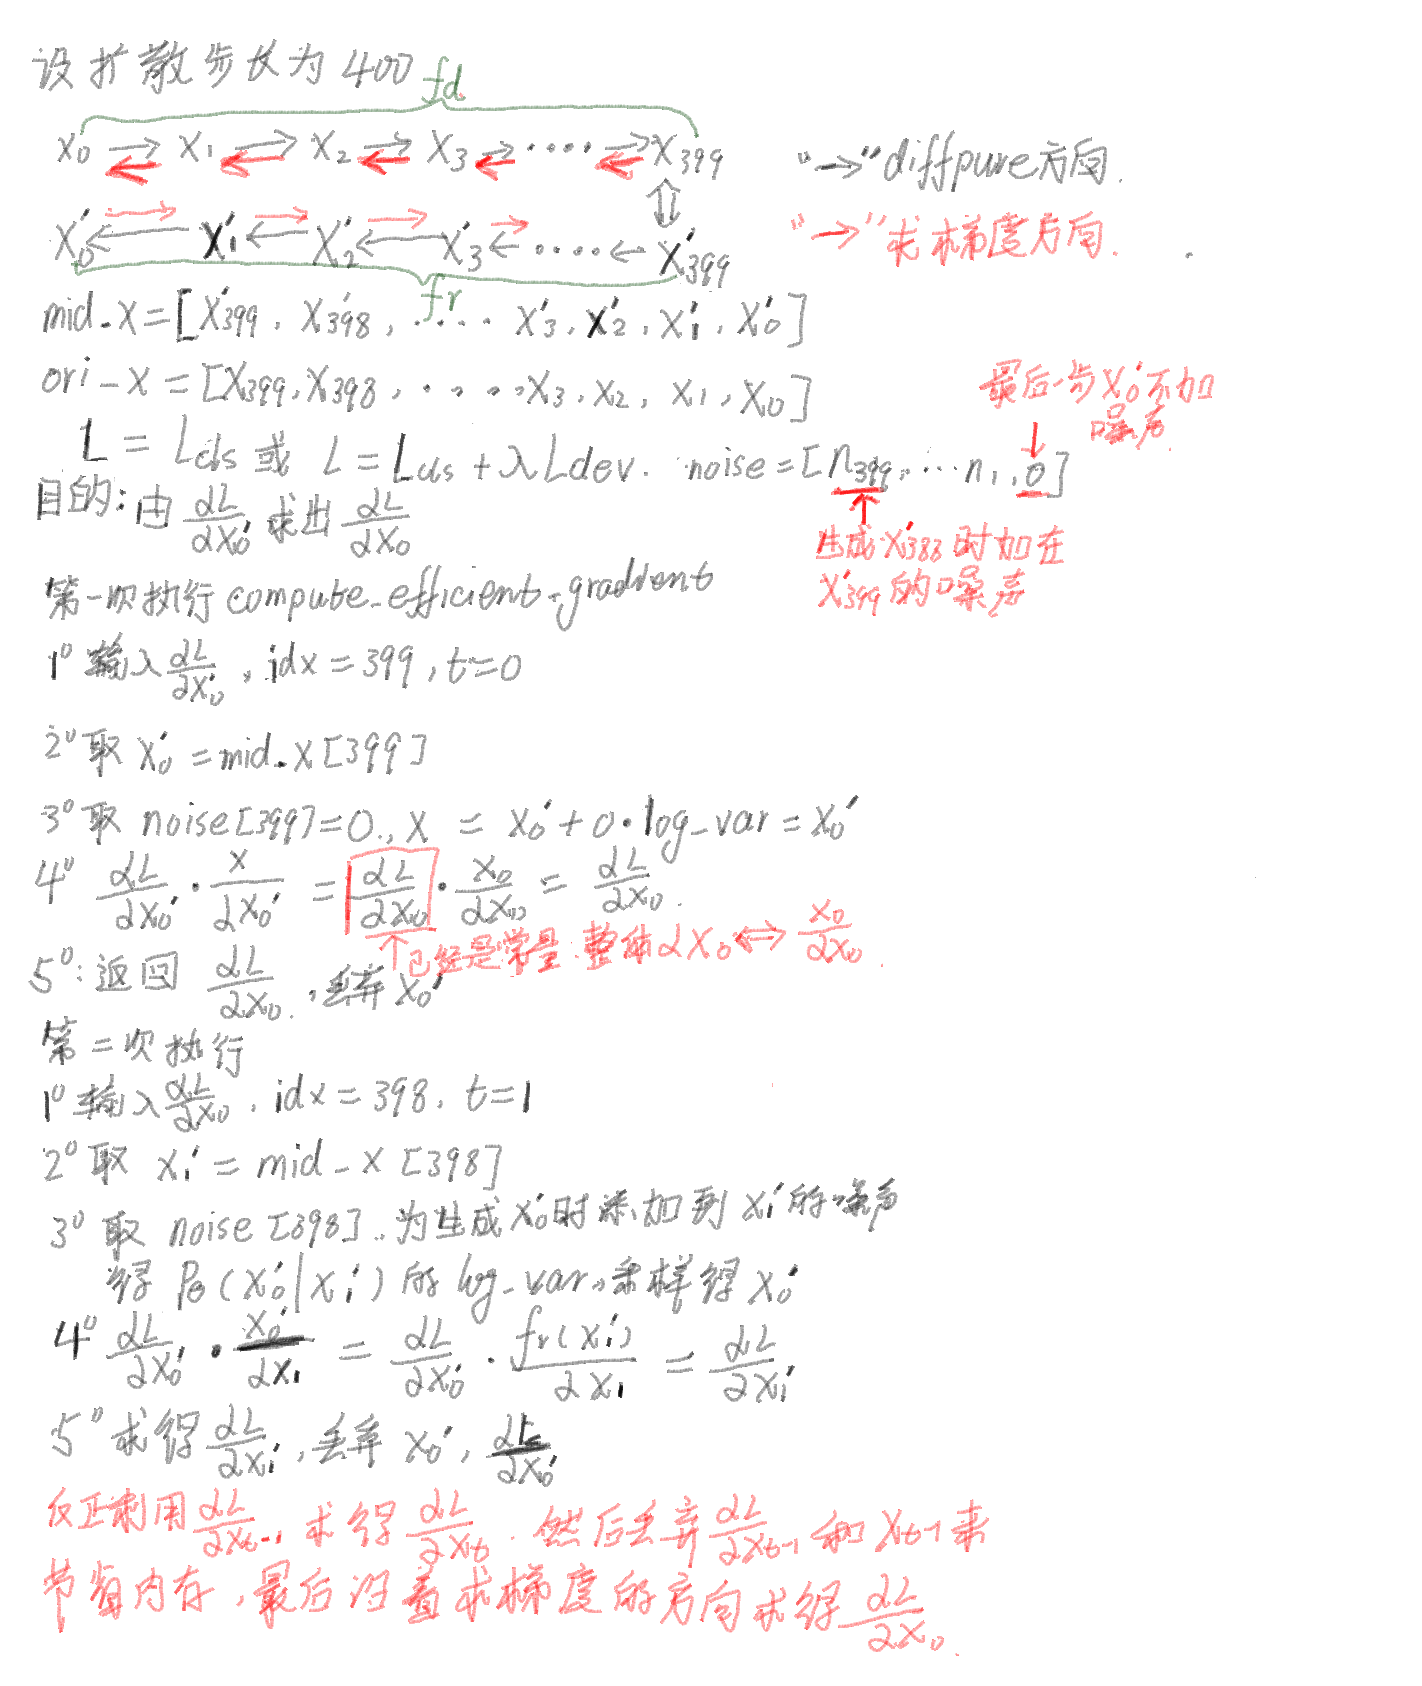 设扩散步长为400
fd
x₀ → x₁ → x₂ → x₃ → ···· → x₃₉₉
"→" diffpure方向.
x₀' ← x₁' ← x₂' ← x₃' ← ···· ← x'₃₉₉
"→" 求梯度方向.
fr
mid_x = [x'₃₉₉, x'₃₉₈, ····· x'₃, x'₂, x'₁, x'₀]
ori_x = [x₃₉₉, x₃₉₈, ····, x₃, x₂, x₁, x₀]
最后一步x₀'不加
噪声
L = Lcls 或 L = Lcls + λLdev. noise = [n₃₉₉, ··· n₁, 0]
目的: 由 ∂L/∂x₀' 求出 ∂L/∂x₀
生成x'₃₈₃时加在
x'₃₉₉的噪声
第一次执行 compute_efficient_gradient
1° 输入 ∂L/∂x₀', idx = 399, t = 0
2° 取 x₀' = mid_x [399]
3° 取 noise[399] = 0, x = x₀' + 0·log_var = x₀'
4° ∂L/∂x₀' · x/∂x₀' = ∂L/∂x₀ · x₀/∂x₀ = ∂L/∂x₀.
已经是常量. 整体∂x₀ ⇔ x₀/∂x₀.
5°: 返回 ∂L/∂x₀. , 丢弃x₀'
第二次执行
1° 输入 ∂L/∂x₀, idx = 398, t = 1
2° 取 x₁' = mid_x [398]
3° 取 noise [398], 为生成x₀'时添加到x₁'的噪声
得 Pθ(x₀'|x₁') 的 log_var, 采样得x₀'
4° ∂L/∂x₀' · x₀'/∂x₁ = ∂L/∂x₀' · fr(x₁')/∂x₁ = ∂L/∂x₁'
5° 求得 ∂L/∂x₁', 丢弃 x₀', ∂L/∂x₀'
反正利用 ∂L/∂xₜ₋₁ 求得 ∂L/∂xₜ. 然后丢弃 ∂L/∂xₜ₋₁ 和 xₜ₋₁来
节省内存, 最后沿着求梯度的方向求得 ∂L/∂x₀.